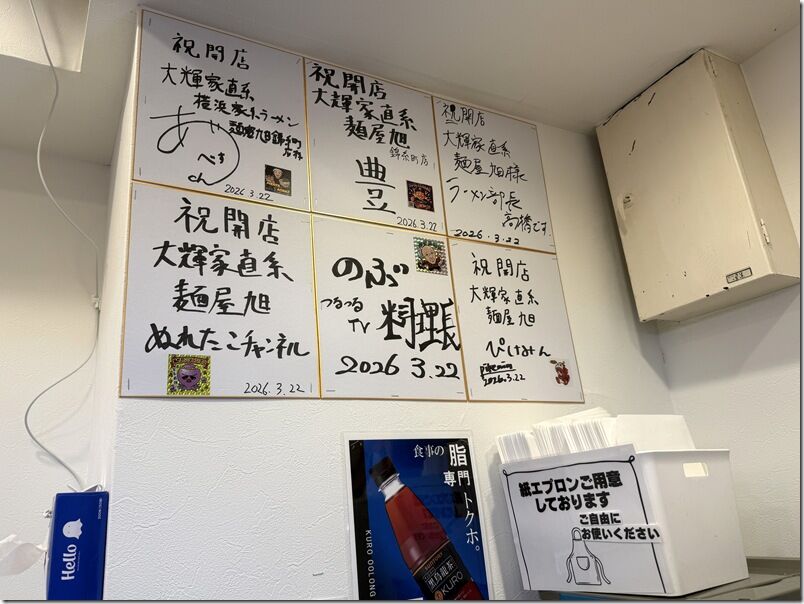 祝開店
大輝家直系
横浜家系ラーメン
麺屋旭錦糸町
2026.3.22
祝開店
大輝家直系
麺屋旭
錦糸町店
豊
2026.3.22
祝開店
大輝家直系
麺屋旭様
ラーメン部長
高橋です.
2026.3.22
祝開店
大輝家直系
麺屋旭
ぬれたこチャンネル
2026.3.22
のぶ
つるつる
TV
料理長
2026 3.22
祝開店
大輝家直系
麺屋旭
ぴけみん
2026.3.22
食事の
脂
専門トクホ。
KURO OOLONG
黒烏龍茶
KURO
Hello
紙エプロンご用意
しております
ご自由に
お使いください